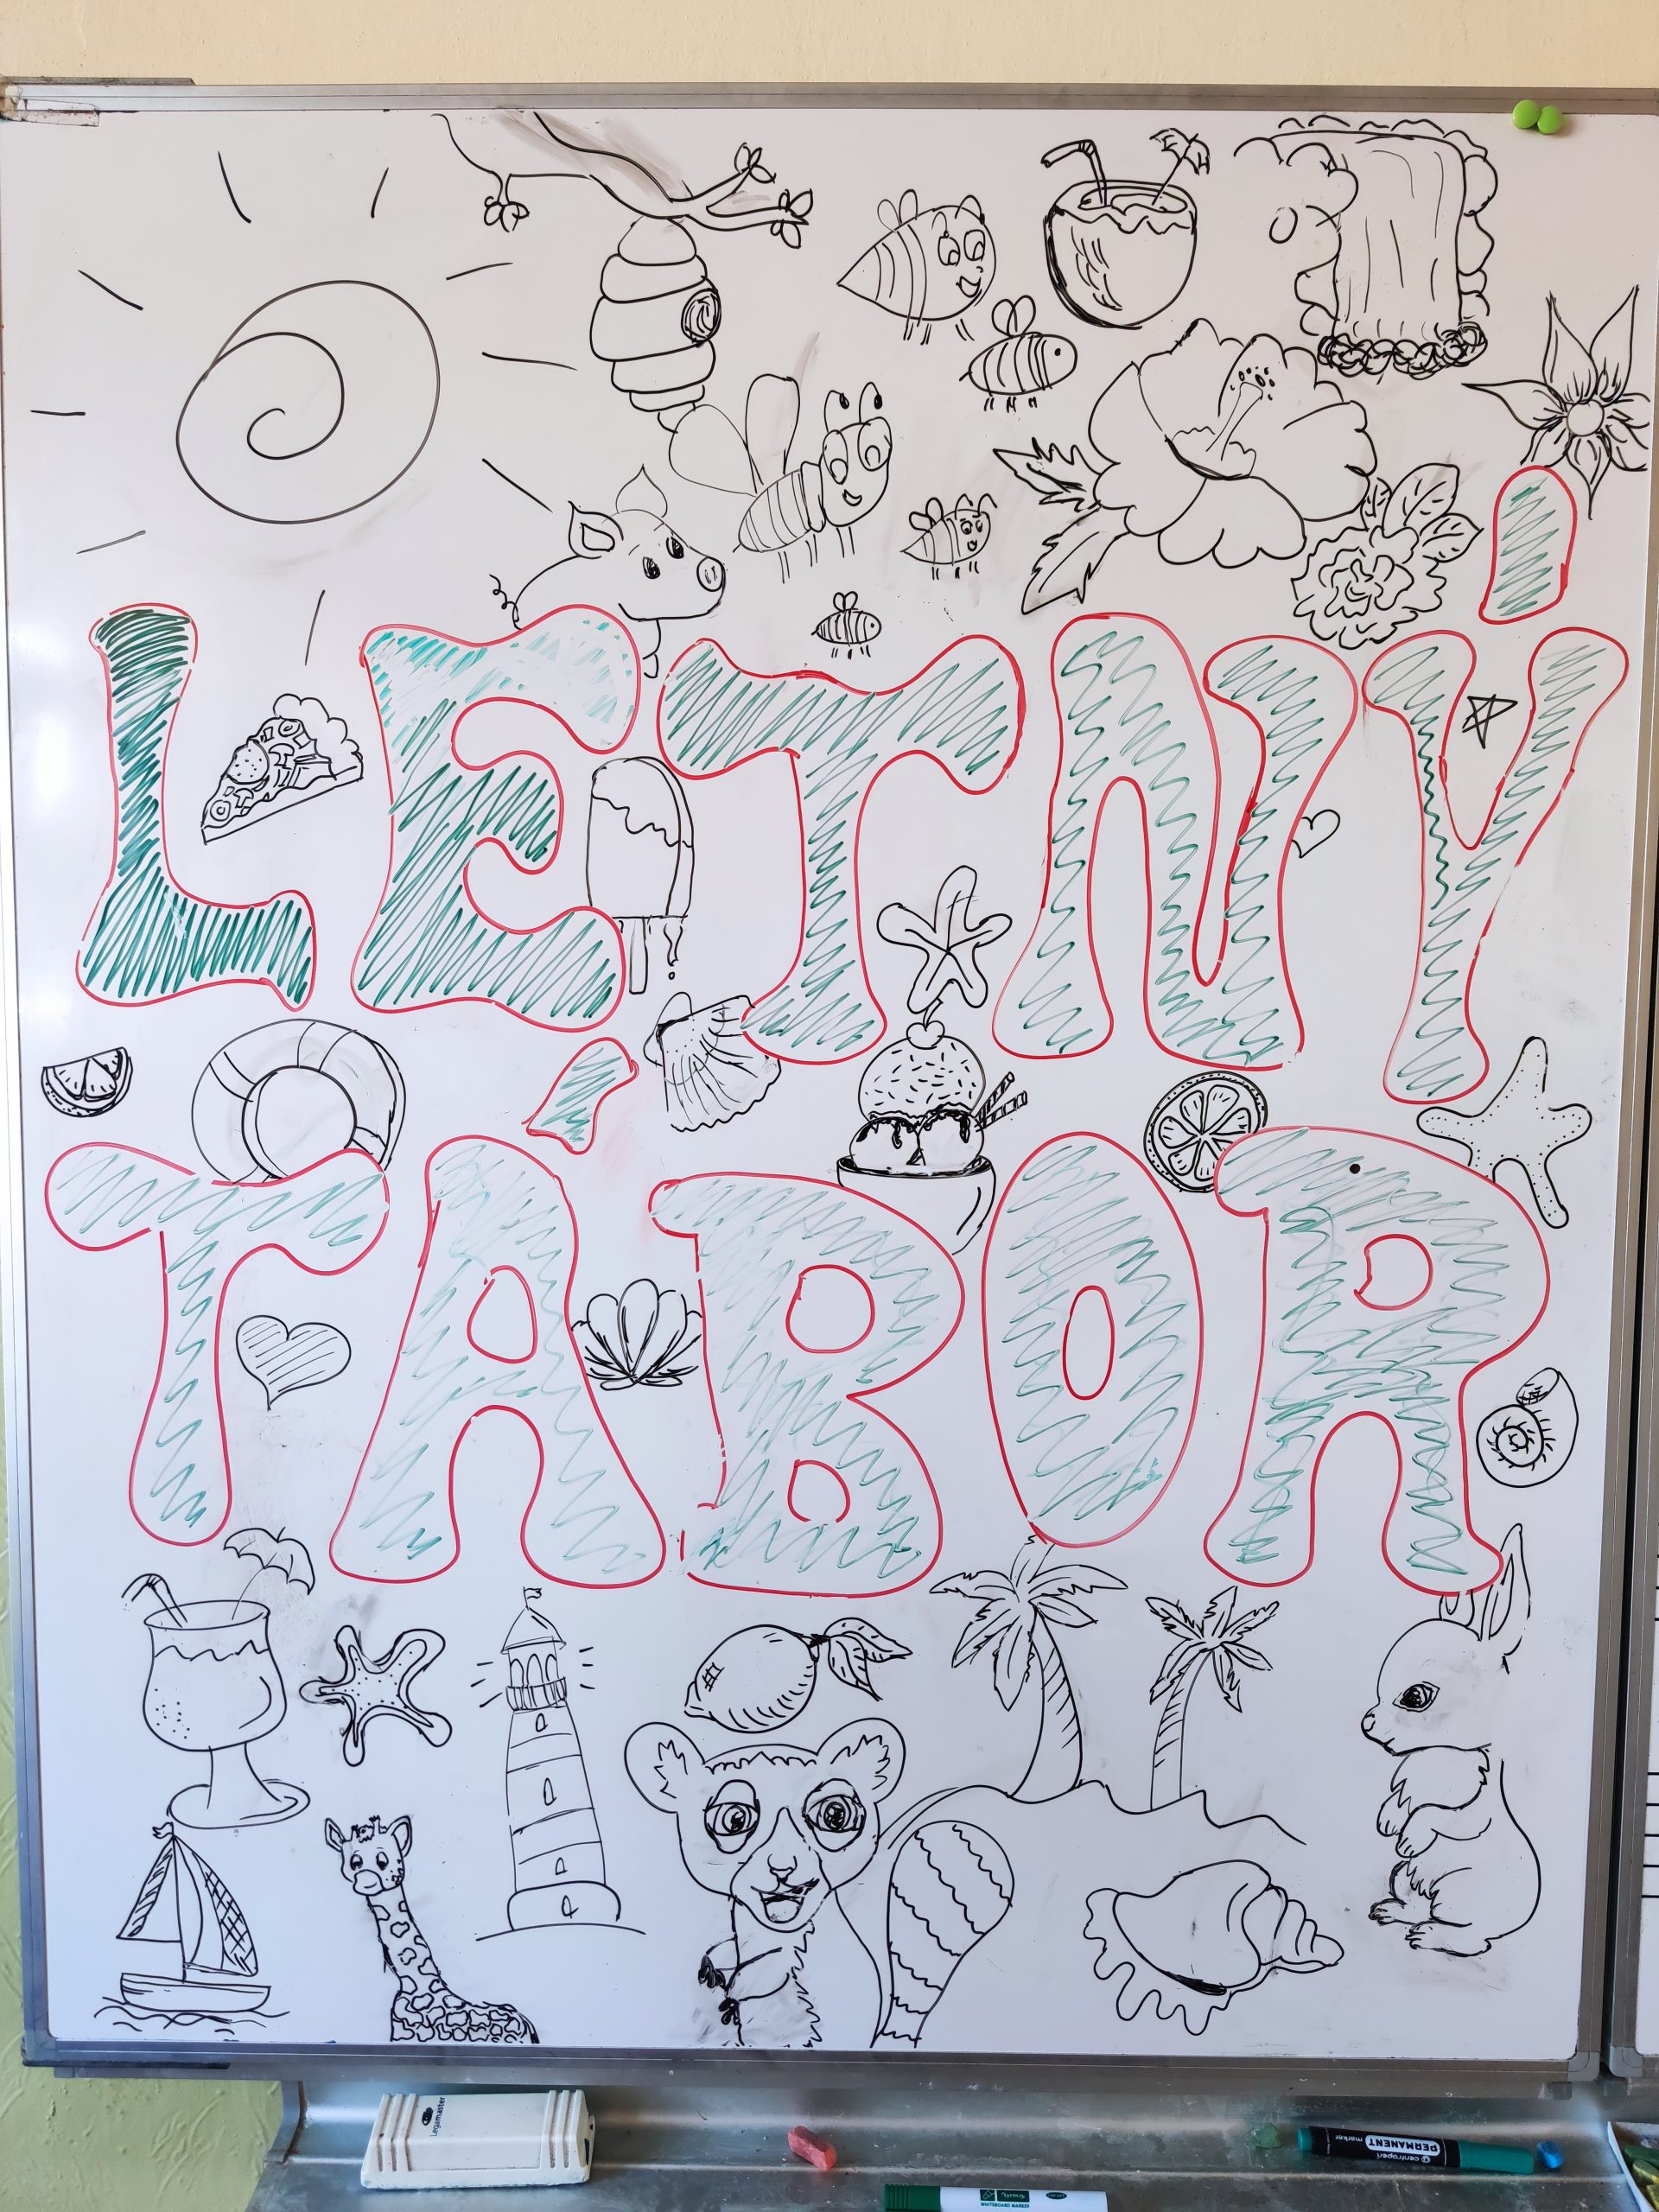 LETNÝ
TÁBOR
Legamaster
centropen
PERMANENT
marker
WHITEBOARD MARKER